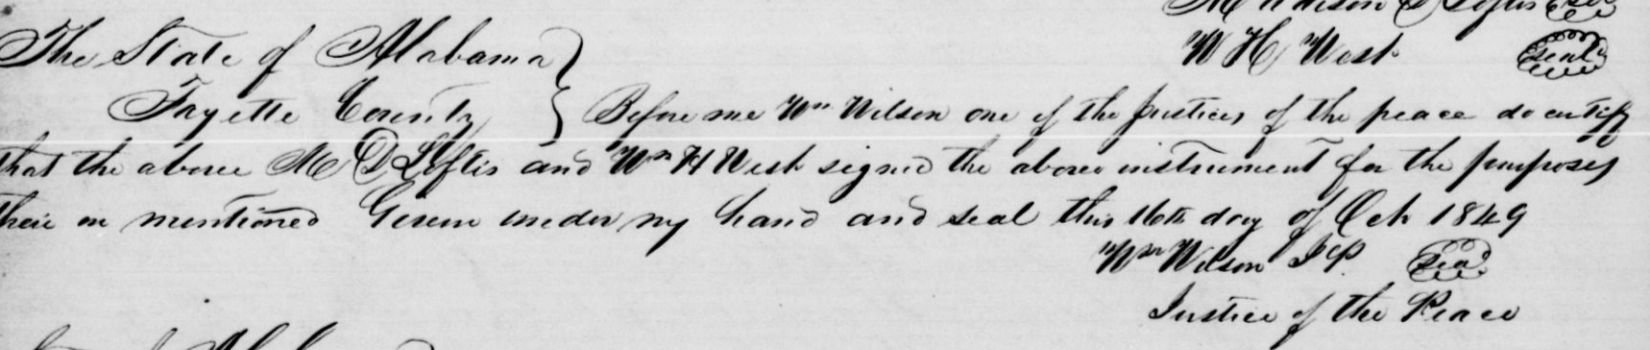 Madison D Loftis Seal
W H West Seal
The State of Alabama }
Fayette County } Before me Wm Wilson one of the Justices of the peace do certify
that the above M D Loftis and Wm H West signed the above instrument for the purposes
there in mentioned Given under my hand and seal this 16th day of Oct 1849
Wm Wilson J P. Seal
Justice of the Peace